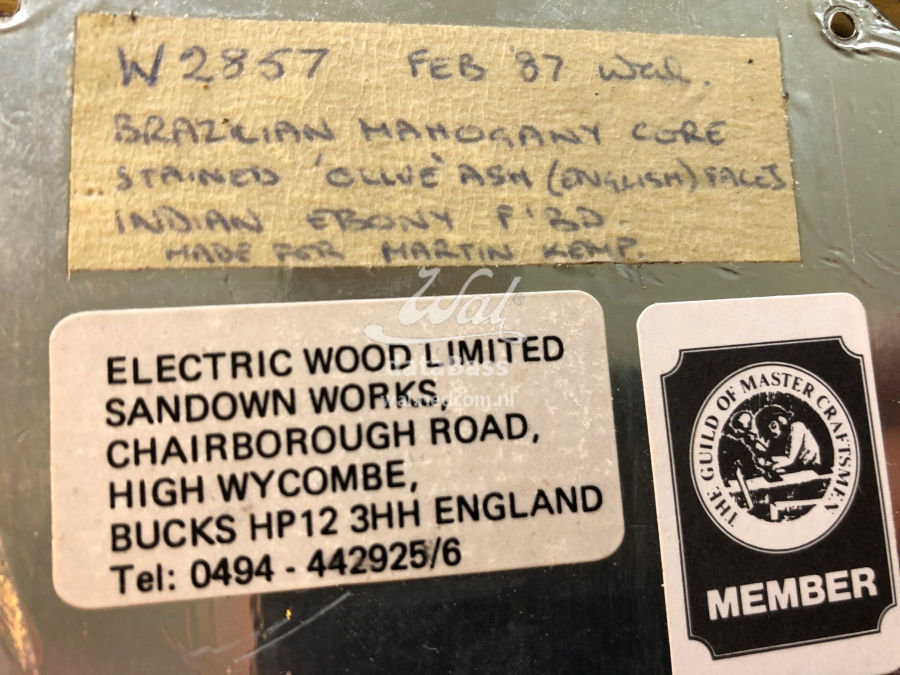 W2857 FEB '87 Wal.
BRAZILIAN MAHOGANY CORE
STAINED 'OLIVE' ASH (ENGLISH) FACES
INDIAN EBONY F'BD.
MADE FOR MARTIN KEMP.
Wal®
dataBass
ELECTRIC WOOD LIMITED
SANDOWN WORKS,
CHAIRBOROUGH ROAD,
HIGH WYCOMBE,
BUCKS HP12 3HH ENGLAND
Tel: 0494 - 442925/6
THE GUILD OF MASTER CRAFTSMEN
MEMBER